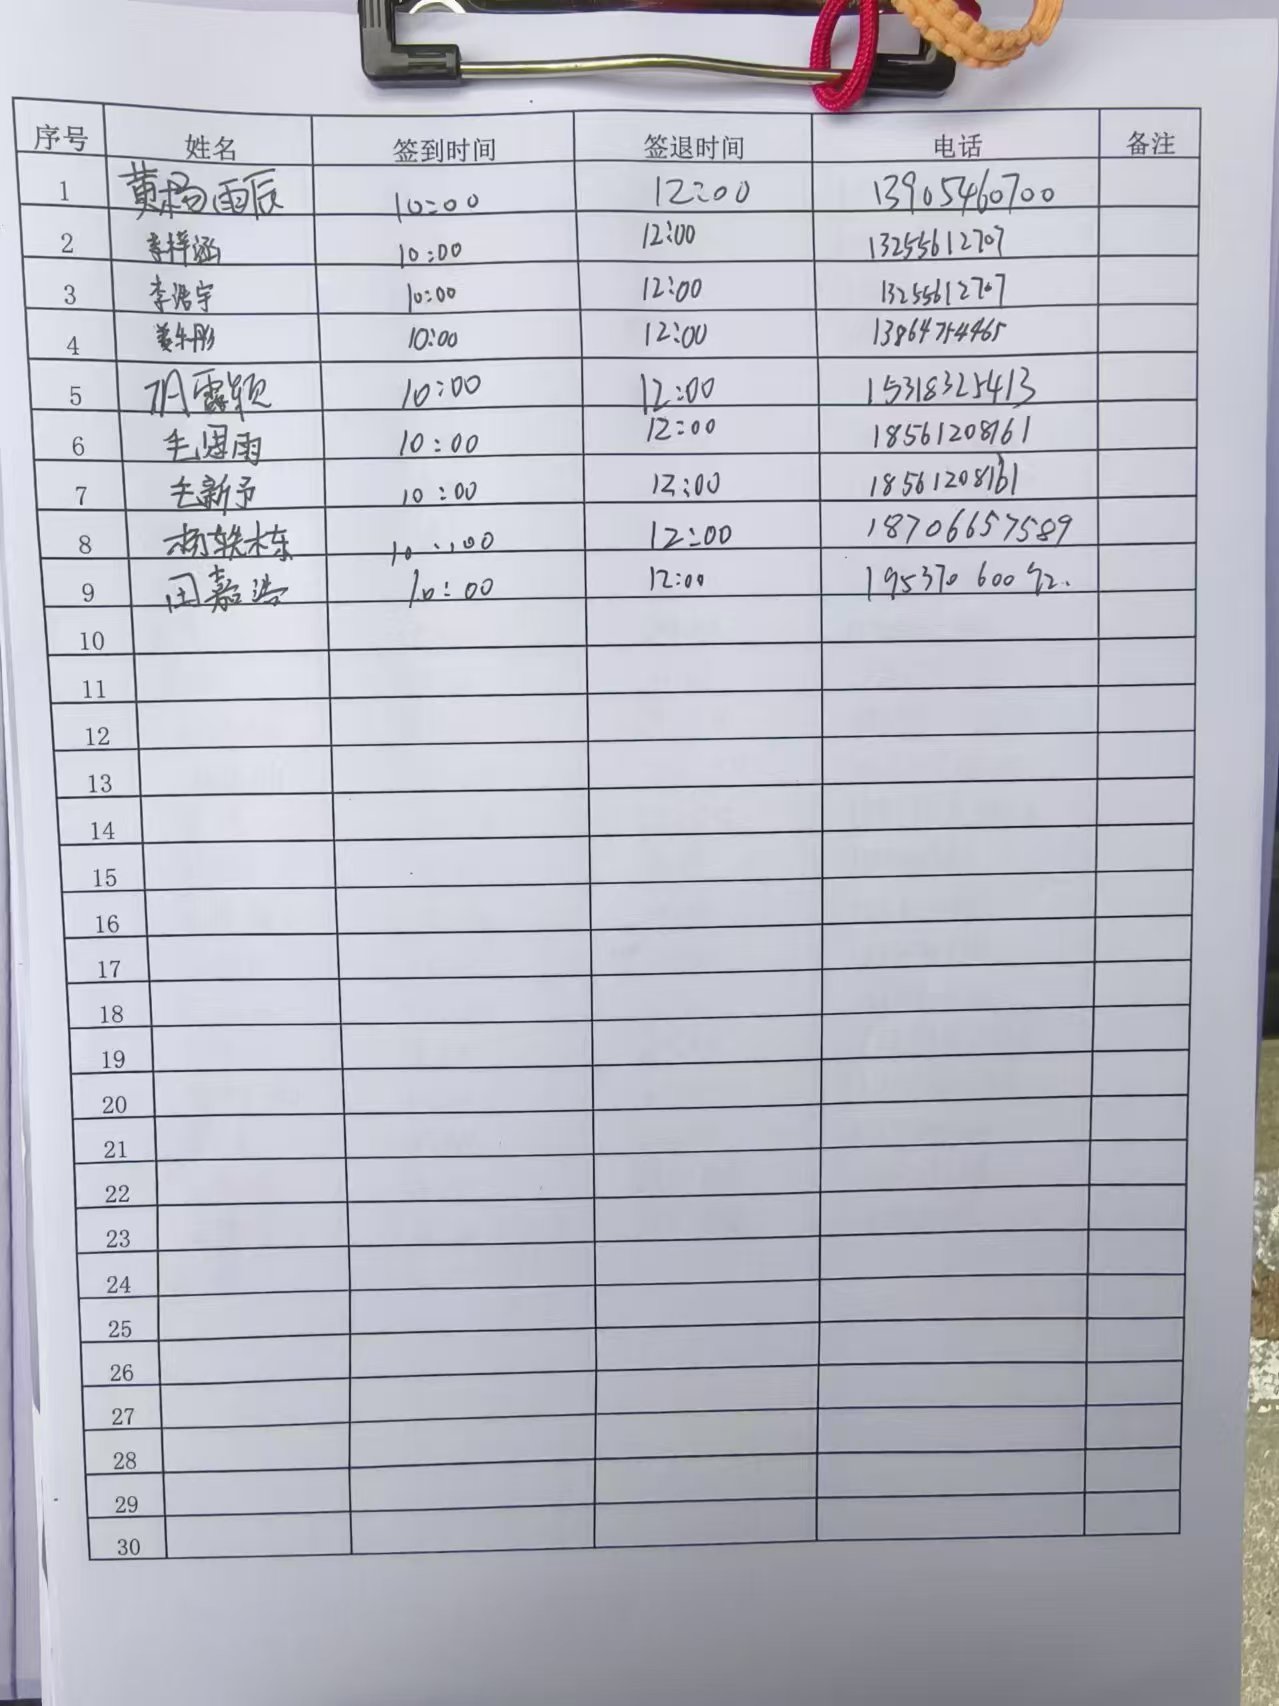 序号 姓名 签到时间 签退时间 电话 备注
1 黄杨雨辰 10:00 12:00 13905460700
2 李梓涵 10:00 12:00 13255612707
3 李浩宇 10:00 12:00 13255612707
4 10:00 12:00 13864754465
5 10:00 12:00 15318325413
6 毛思雨 10:00 12:00 18561208161
7 毛新予 10:00 12:00 18561208161
8 杨轶栋 10:00 12:00 18706657589
9 田嘉浩 10:00 12:00 19537060092
10
11
12
13
14
15
16
17
18
19
20
21
22
23
24
25
26
27
28
29
30